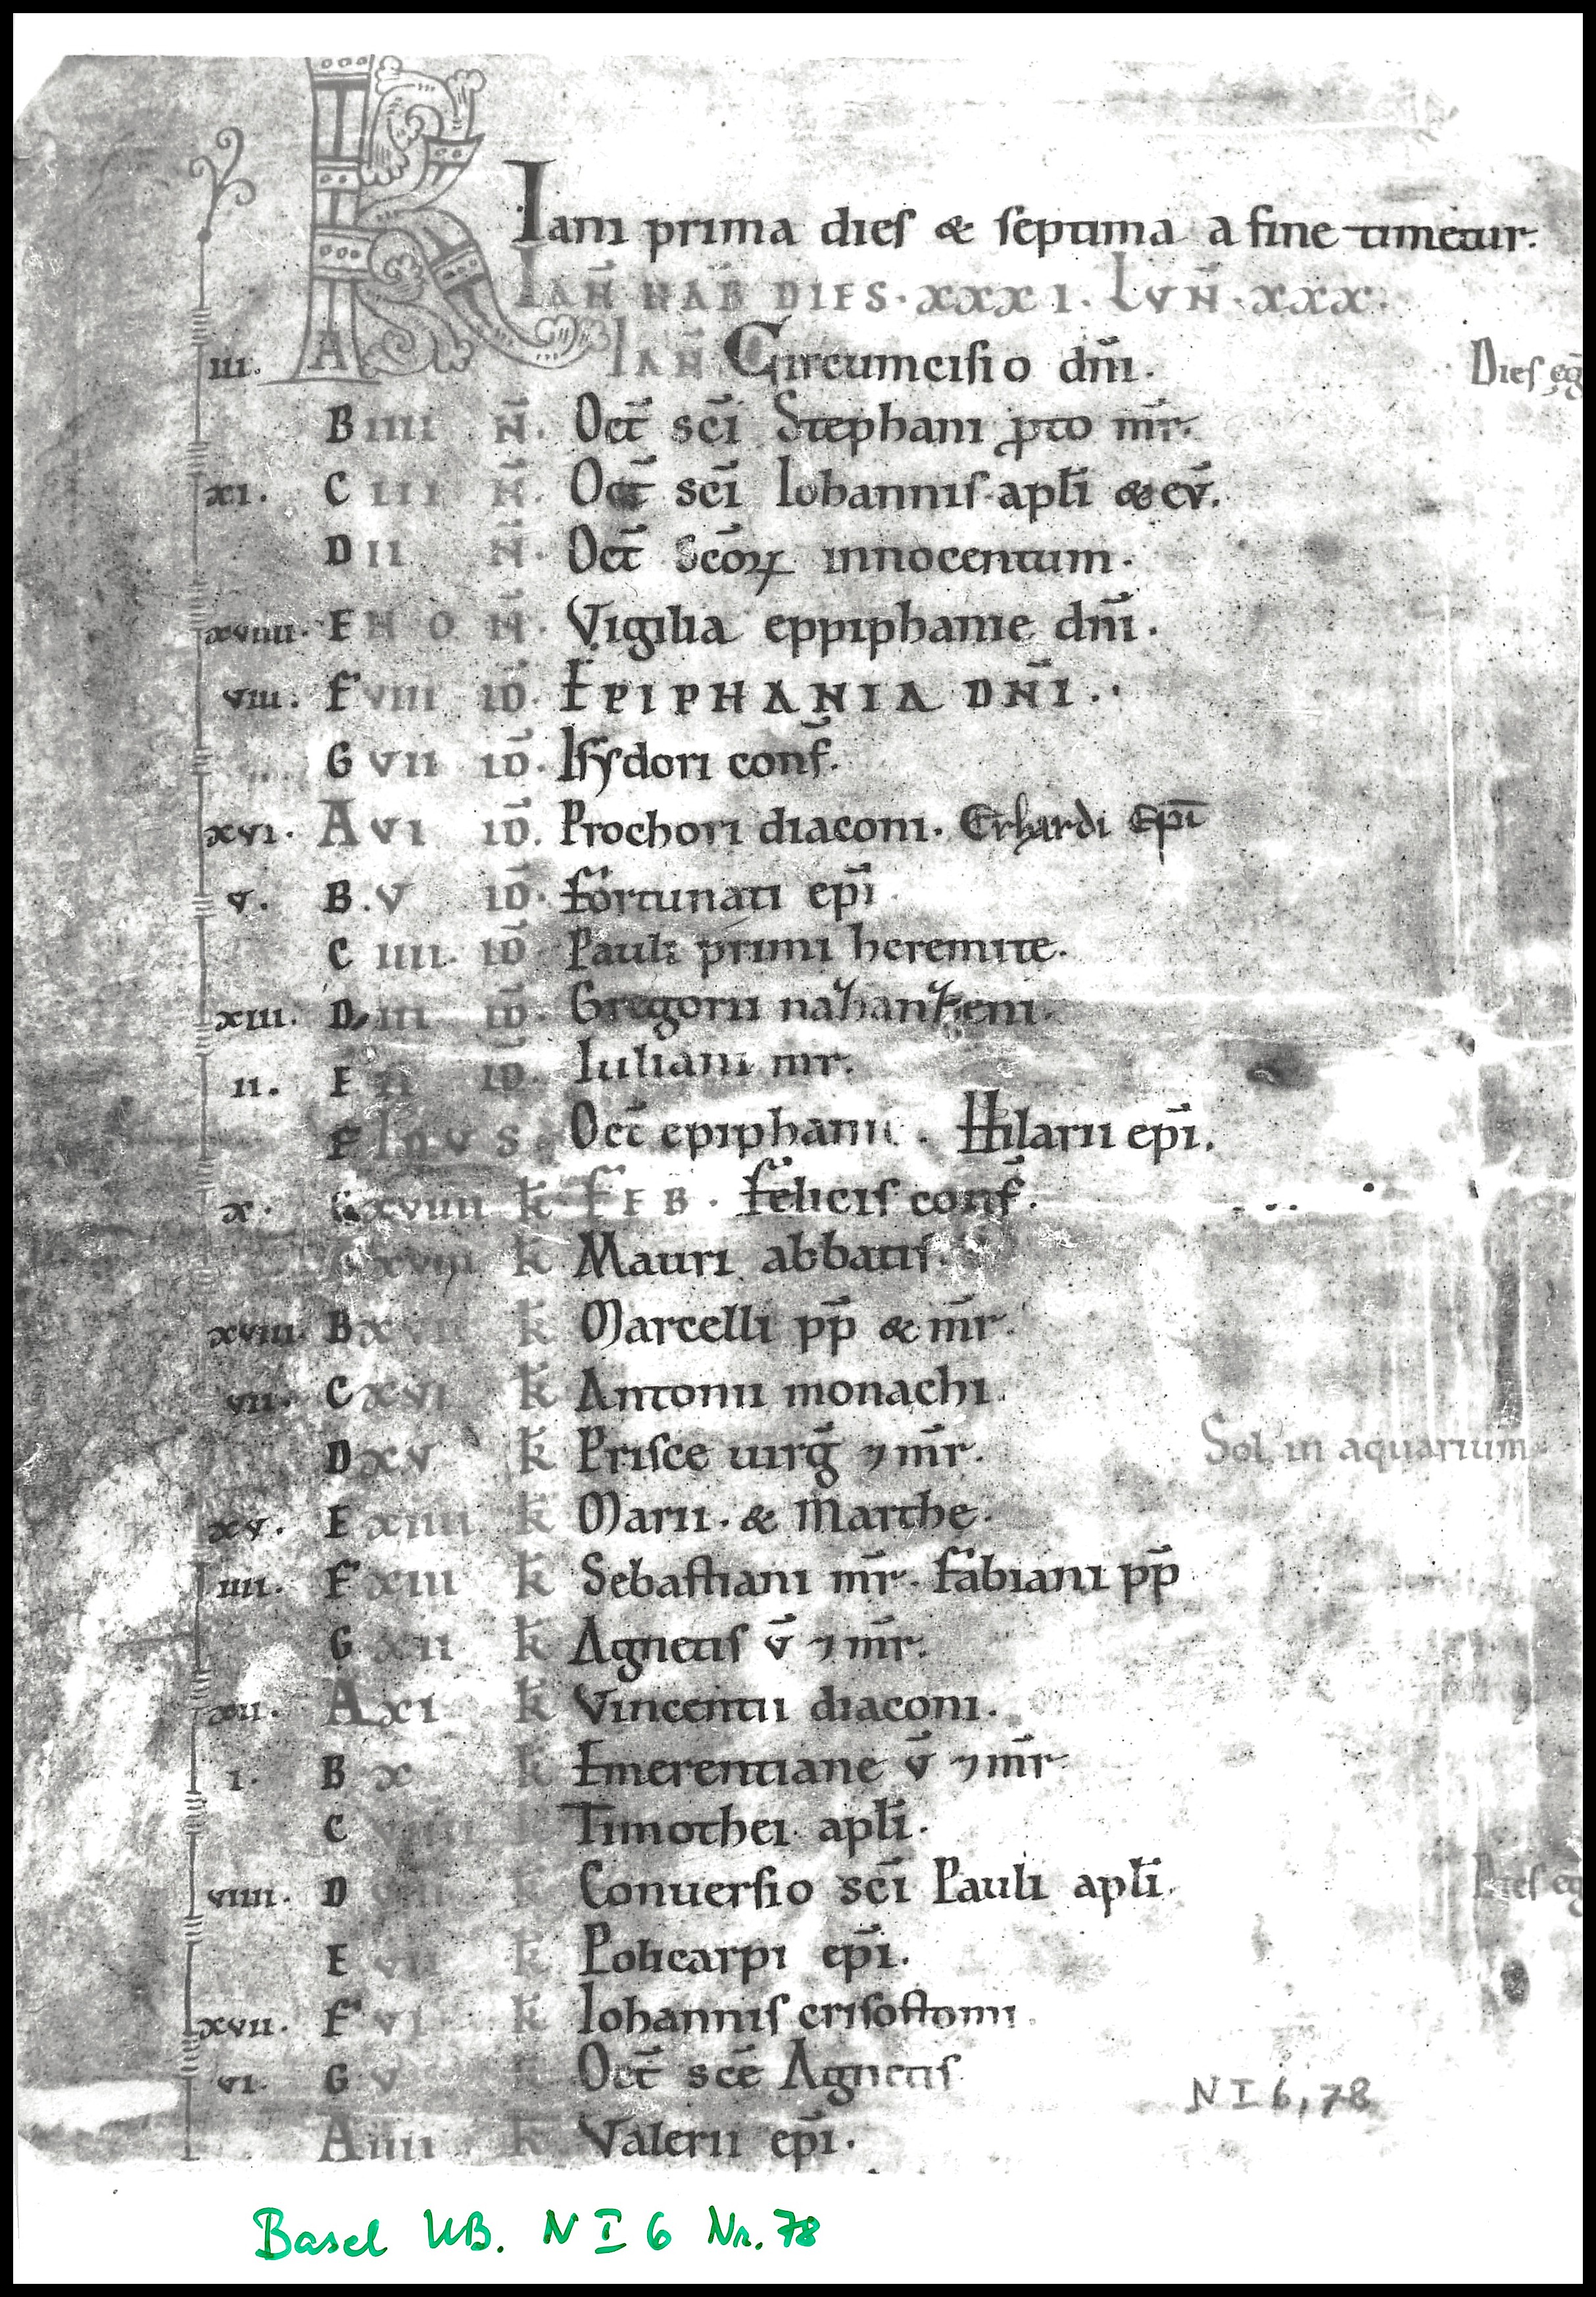 K
Iani prima dies & septima a fine timetur.
IAÑ HAB̄ DIES. XXXI. LVÑ. XXX.
iii. A IAÑ Circumcisio dn̄i. Dies eḡ
B iiii N̄. Oct̄ sc̄i Stephani ꝓto mr̄.
xi. C iii N̄. Oct̄ sc̄i Iohannis apl̄i & ev̄.
D ii N̄. Oct̄ Sc̄oꝝ innocentum.
xviiii. E N O N̄. Vigilia eppiphanie dn̄i.
viii. F viii ID̄. EPIPHANIA DN̄I..
G vii ID̄. Isẏdori conf̄.
xvi. A vi ID̄. Prochori diaconi. Erhardi Ep̄i
v. B. v ID̄. Fortunati ep̄i.
C iiii. ID̄ Pauli primi heremite.
xiii. D iii ID̄. Gregorii nazanzeni.
ii. E ii ID̄. Iuliani mr.
F IDVS Oct̄ epiphanie. Hilarii ep̄i.
x. G xviiii k̄ FEB. Felicis conf̄.
A xviii k̄ Mauri abbatis.
xviii B xvii k̄ Marcelli pp̄ & mr̄.
vii. C xvi k̄ Antonii monachi.
D xv k̄ Prisce uirḡ ⁊ mr̄. Sol in aquarium
xv. E xiiii k̄ Marii. & Marthe.
iiii. F xiii k̄ Sebastiani mr̄. Fabiani pp̄
G xii k̄ Agnetis v̄ ⁊ mr̄.
xii. A xi k̄ Vincentii diaconi.
i. B x k̄ Emerentiane v̄ ⁊ mr̄
C viiii k̄ Timothei apl̄i.
viiii. D viii k̄ Conuersio sc̄i Pauli apl̄i. Dies eḡ
E vii k̄ Policarpi ep̄i.
xvii. F vi k̄ Iohannis crisostomi.
vi. G v k̄ Oct̄ sc̄e Agnetis
A iiii k̄ Valerii ep̄i.
N I 6, 78
Basel UB. N I 6 Nr. 78